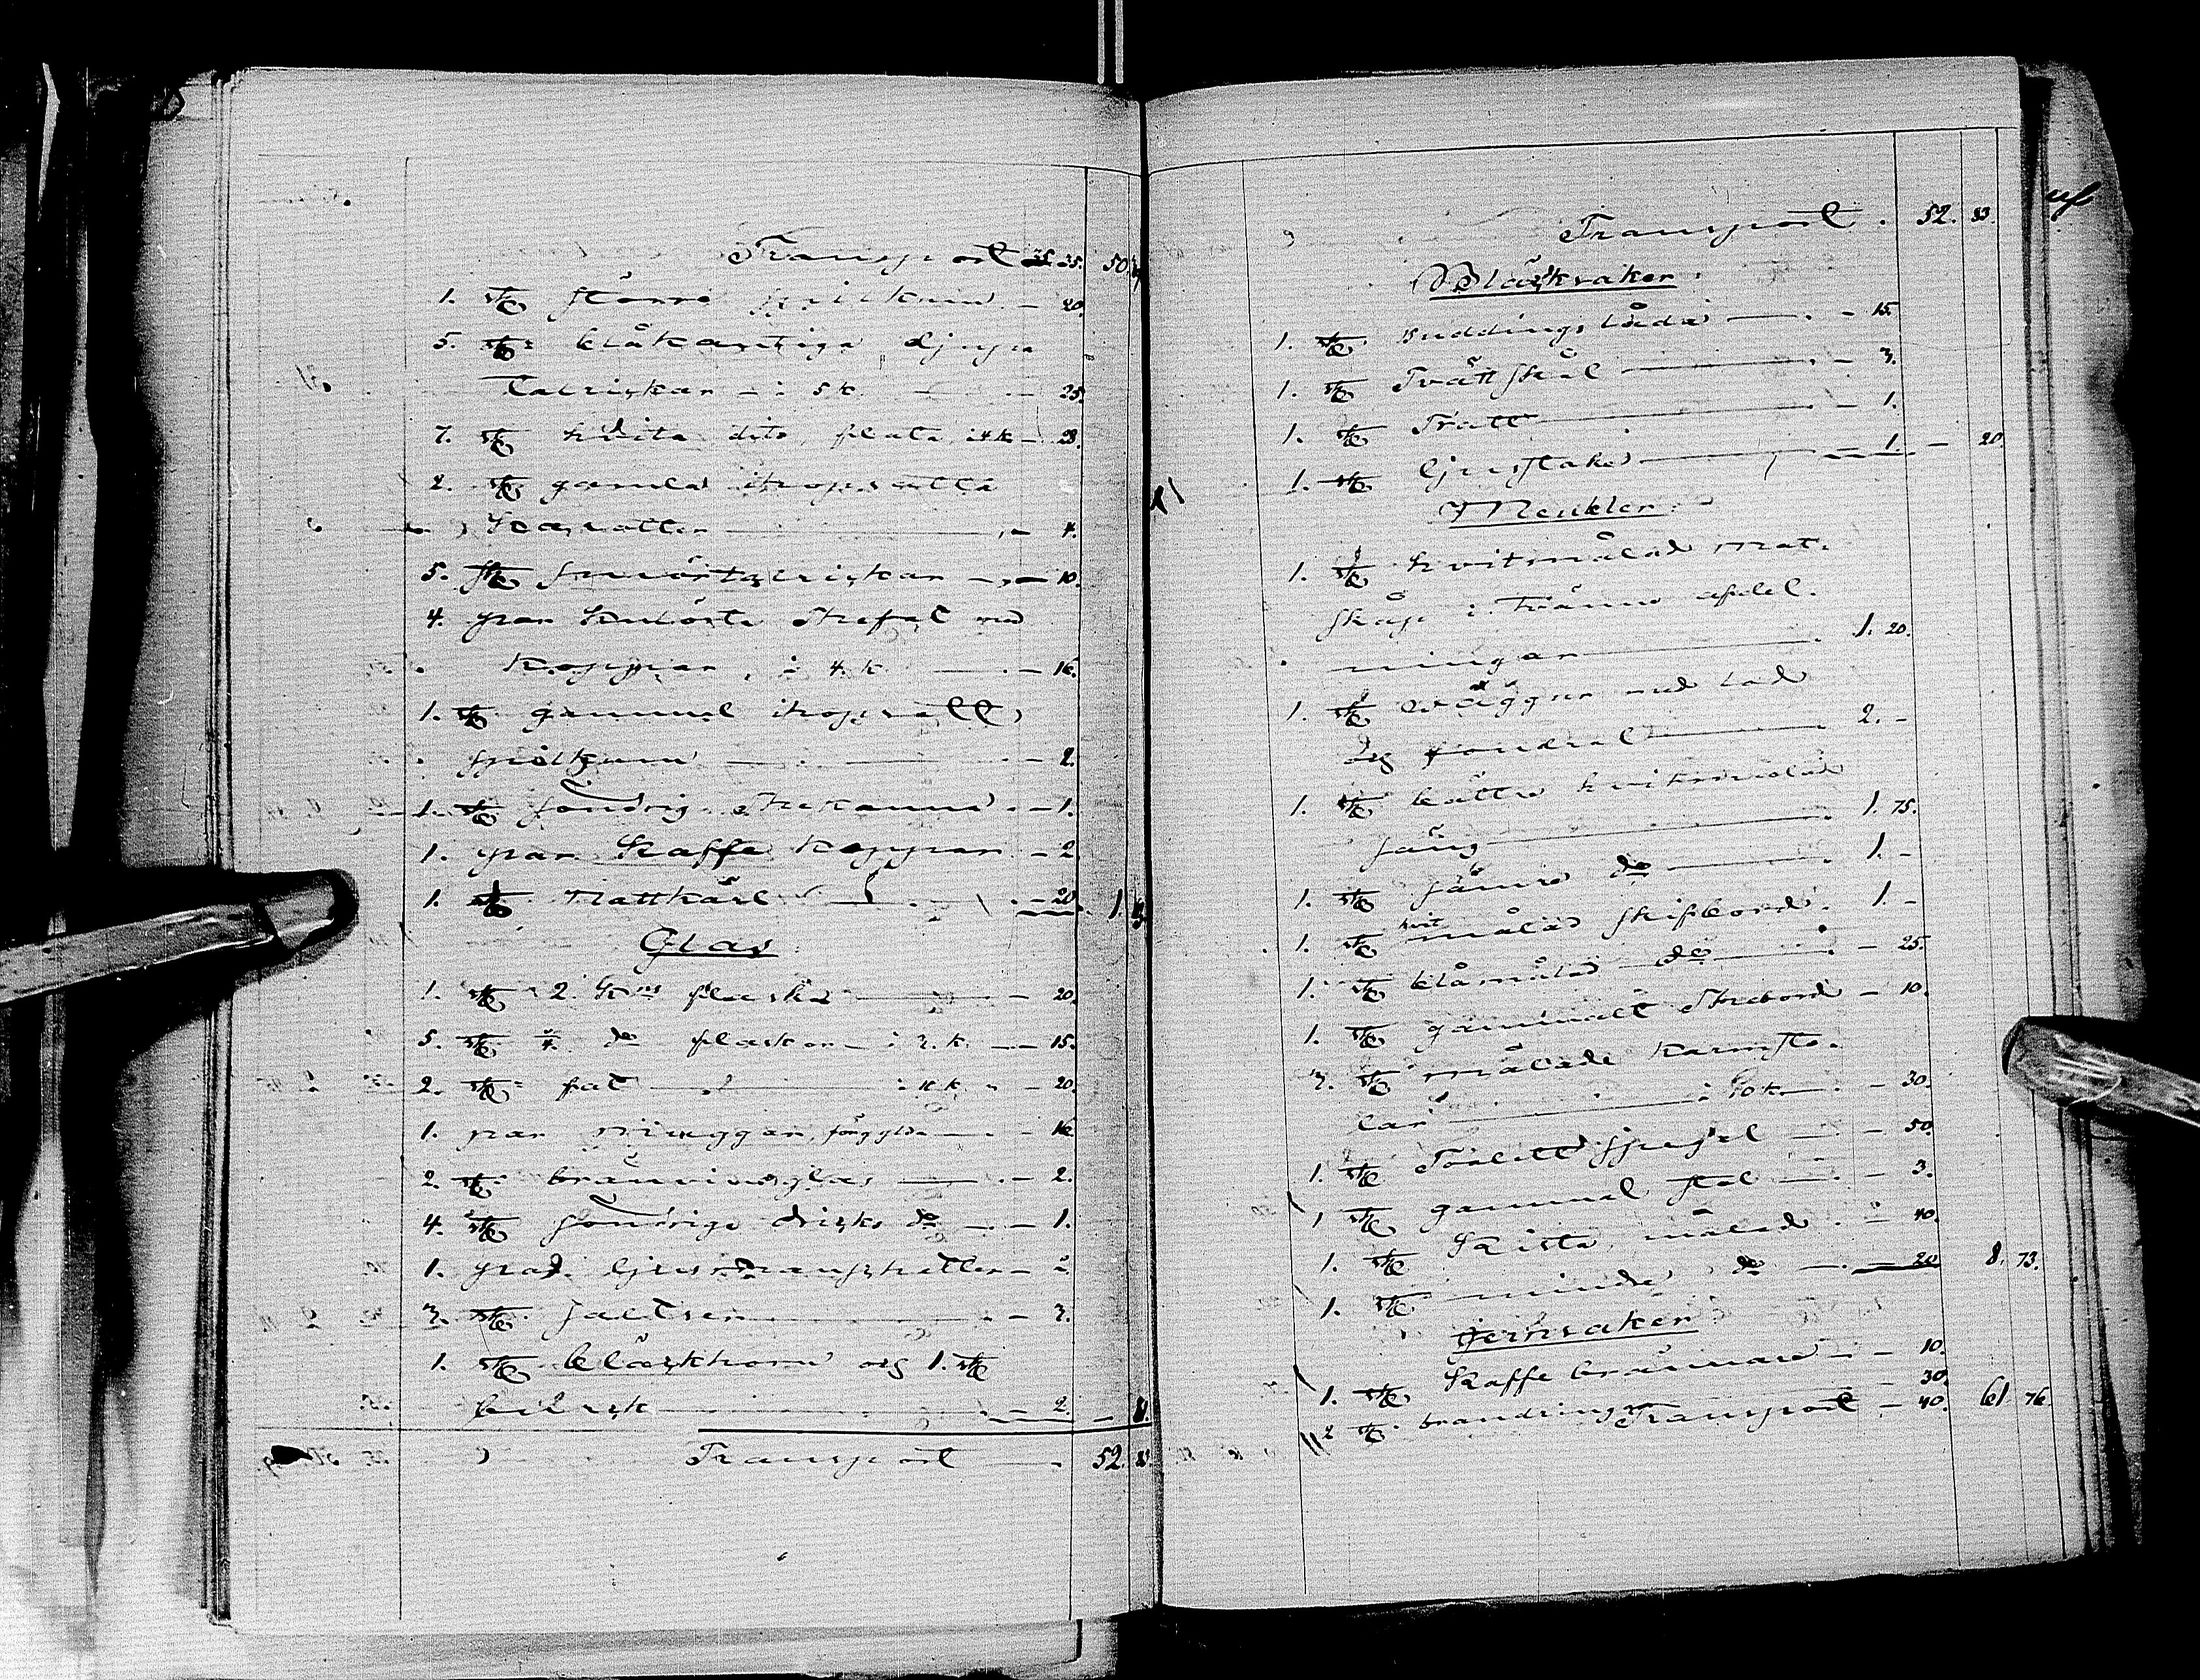 Transport 35. 50.
1. st större spilkum — 20.
5. st blåkantiga djupa
Talriskar — à 5 k. — 25.
7. st hvita dito, flata à 4 k — 28.
2. st gamla ihopsatta
Karotter — 4.
5. st smörtalriskar — 10.
4. par kulörta thefat med
koppar, à 4. k. — 16.
1. st gammal ihopsatt
spilkum — 2.
1. st söndrig thekanna — 1.
1. par Kaffe koppar — 2.
1. st nattkärl — 20. 1.
Glas
1. st 2. K:ns flaska — 20.
5. st do flaskor — à 3. k. — 15.
2. st fat — à 10 k. — 20.
1. par muggar, färg glas — 16
2. st brännvinsglas — 2.
4. st söndriga dricks do — 1.
1. par ljusmanschetter — 2
3. st saltser — 3.
1. st bläckhorn och 1. st
— 2.
Transport — 52. 83.
Transport. 52. 83.
Bläcksaker:
1. st Puddingslåda — 15.
1. st Tvättskål — 3.
1. st Tratt — 1.
1. st ljusstake — 1. — 20
Meubler:
1. st hvitmålad mat-
skåp i tvänne afdel-
ningar — 1. 20.
1. st med lad
och — 2. –
1. st bättre hvitmålad
säng — 1. 75.
1. st sämre do — 1. –
1. st hvit målad skifbord. 1. –
1. st blåmålad do — 25.
1. st gammalt thebord — 10.
3. st målade karmsto-
lar — à 10 k. — 30.
1. st Toilett spegel — 50.
1. st gammal stol — 3.
1. st Kista, målad — 40.
1. st mindre do — 20 8. 73.
jernsaker
1. st Kaffe brännare — 10.
30.
2 st brandringar Transport — 40. 61. 76.